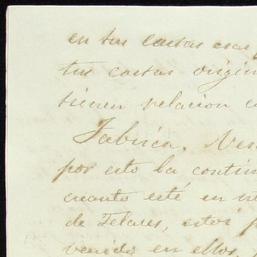 en tus cartas esas
tus cartas origin
tienen relacion c
Fabrica. Ves
por esto la contin
cuanto esté en m
de Telares, estos p
venido en ellos,